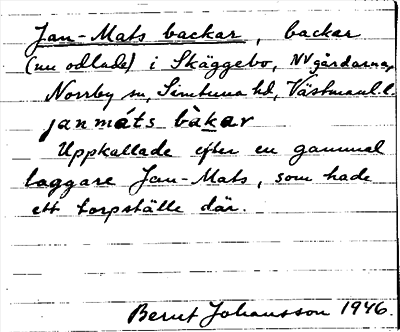 Jan-Mats backar, backar
(nu odlade) i Skäggebo, NVgårdarna,
Norrby sn, Simtuna hd, Västmanl. l.
janmáts bàkar
Uppkallade efter en gammal
taggare Jan-Mats, som hade
ett torpställe där.
Bernt Johansson 1946.